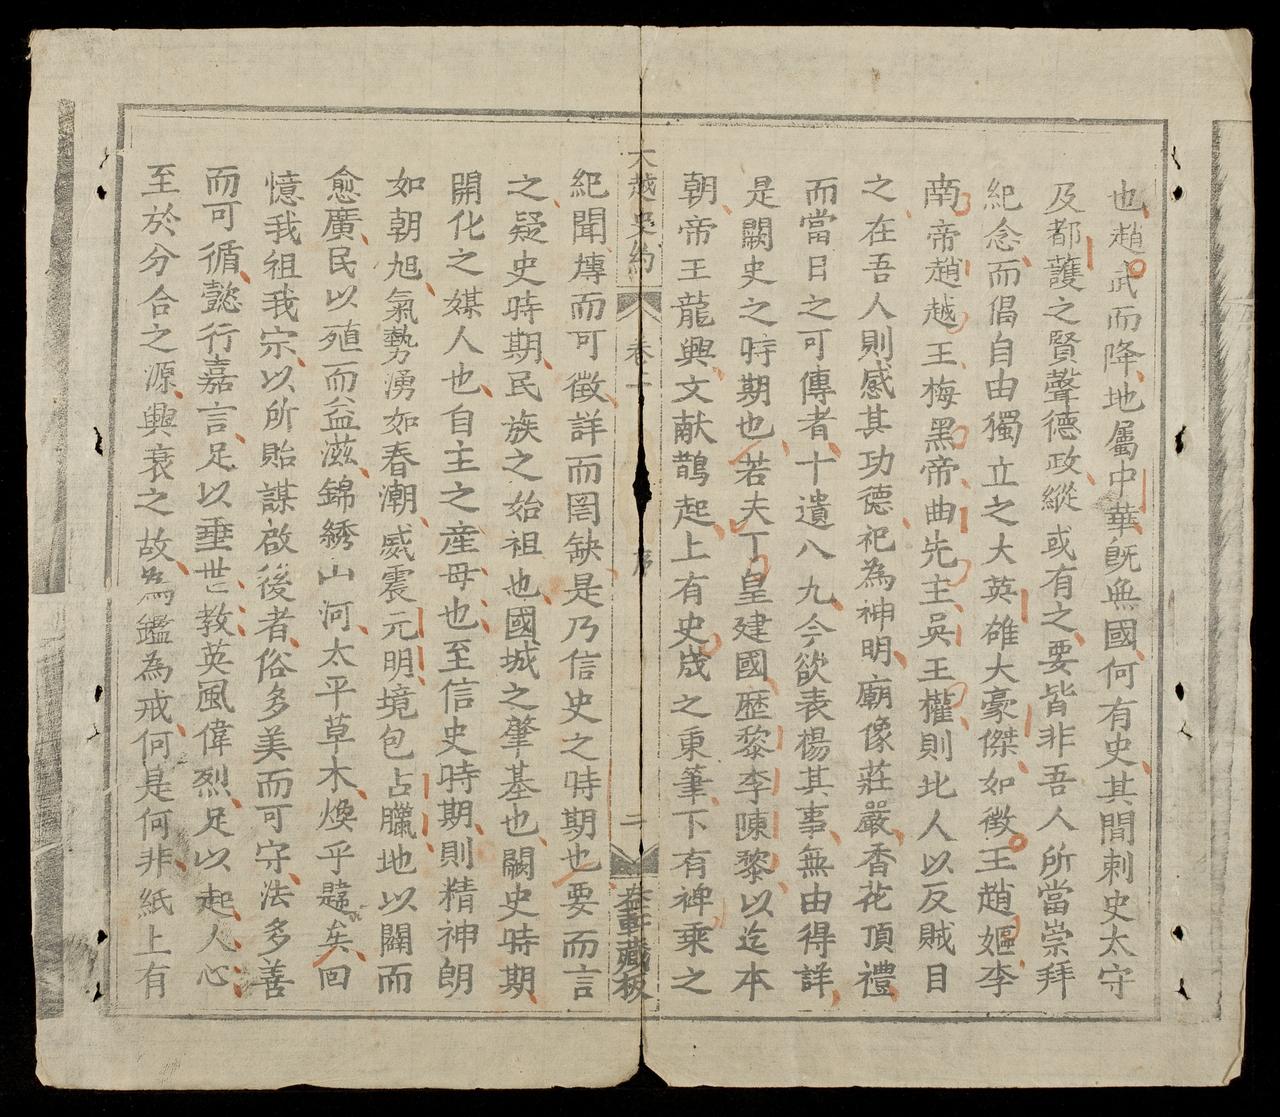 也趙武而降地屬中華旣無國何有史其間刺史太守
及都護之賢聲德政縱或有之要皆非吾人所當崇拜
紀念而倡自由獨立之大英雄大豪傑如徵王趙嫗李
南帝趙越王梅黑帝曲先主吳王權則北人以反賊目
之在吾人則感其功德祀為神明廟像莊嚴香花頂禮
而當日之可傳者十遺八九今欲表楊其事無由得詳
是闕史之時期也若夫丁皇建國歷黎李陳黎以迄本
朝帝王龍興文献鵲起上有史宬之秉筆下有裨乘之
大越史約 卷二 序 二 𢈔軒藏板
紀聞慱而可徵詳而罔缺是乃信史之時期也要而言
之疑史時期民族之始祖也國城之肇基也闕史時期
開化之媒人也自主之産母也至信史時期則精神朗
如朝旭氣勢湧如春潮威震元明境包占臘地以闢而
愈廣民以殖而益滋錦綉山河太平草木煥乎韙矣回
憶我祖我宗以所貽謀啟後者俗多美而可守法多善
而可循懿行嘉言足以垂世教英風偉烈足以起人心
至於分合之源興衰之故為鑑為戒何是何非紙上有